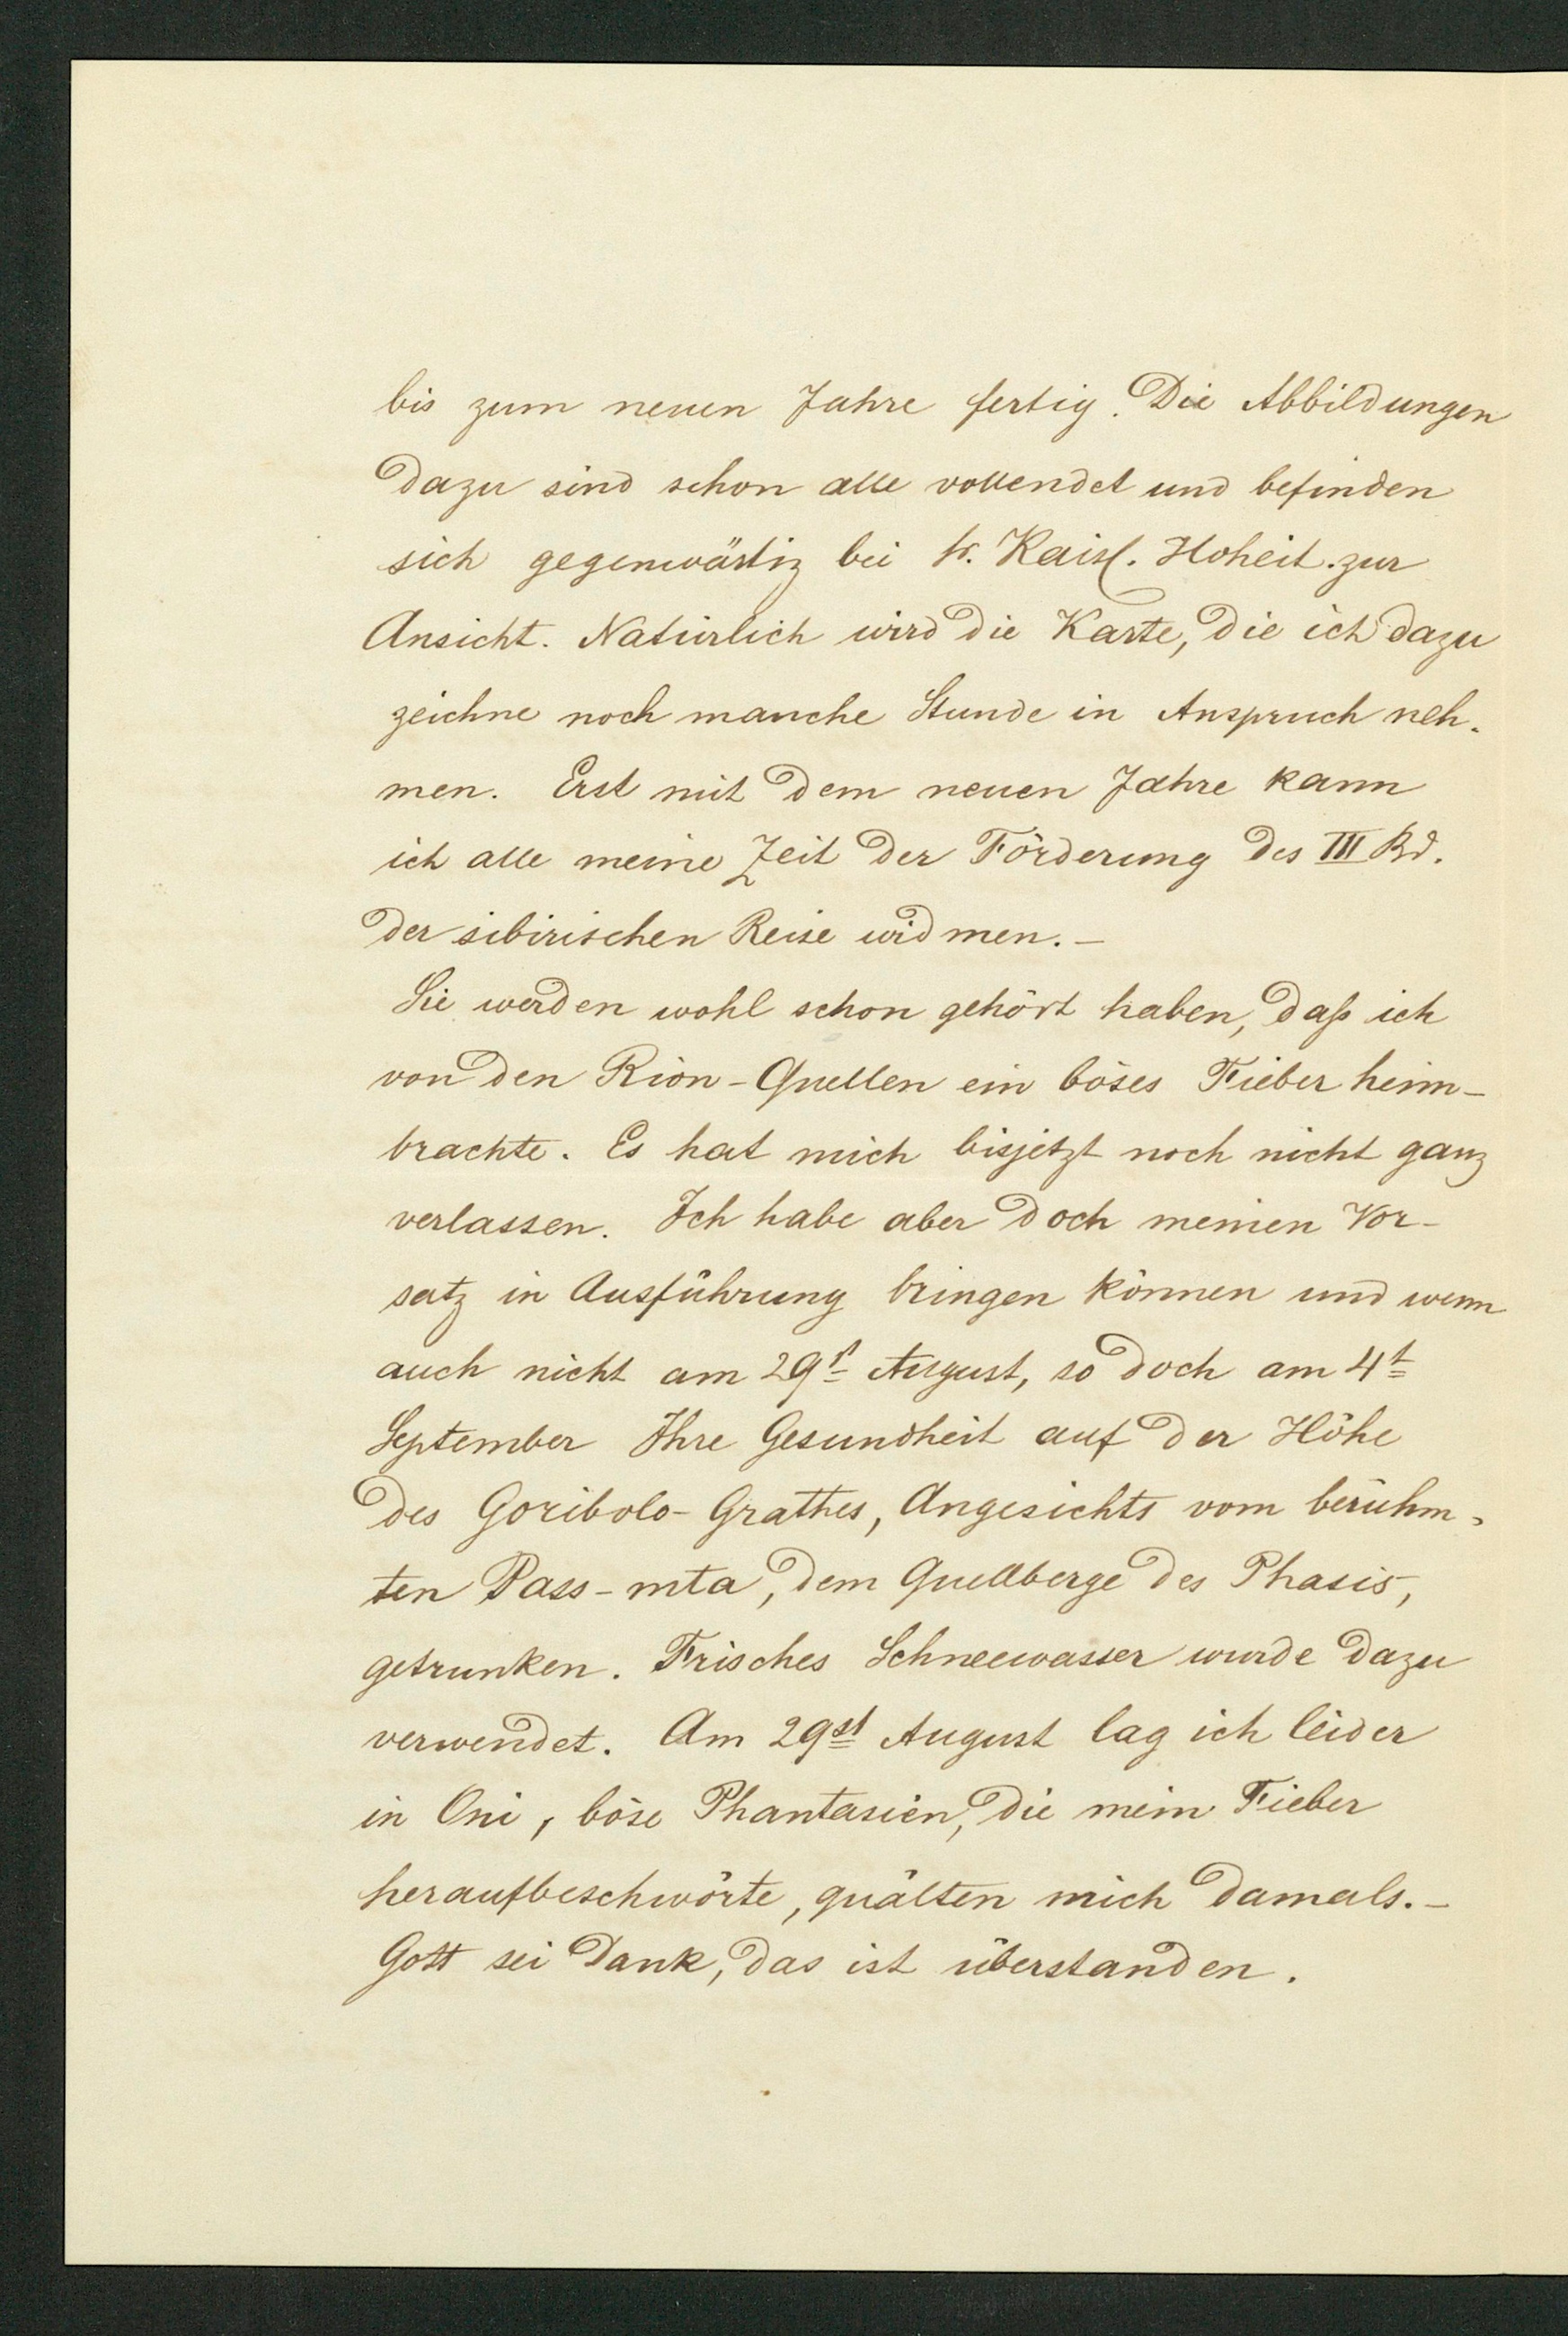 bis zum neuen Jahre fertig. Die Abbildungen
dazu sind schon alle vollendet und befinden
sich gegenwärtig bei Sr. Kaisl. Hoheit. zur
Ansicht. Natürlich wird die Karte, die ich dazu
zeichne noch manche Stunde in Anspruch neh-
men. Erst mit dem neuen Jahre kann
ich alle meine Zeit der Förderung des III Bd.
der sibirischen Reise widmen. –
Sie werden wohl schon gehört haben, daß ich
von den Rion-Quellen ein böses Fieber heim-
brachte. Es hat mich bisjetzt noch nicht ganz
verlassen. Ich habe aber doch meinen Vor-
satz in Ausführung bringen können und wenn
auch nicht am 29st August, so doch am 4t
September Ihre Gesundheit auf der Höhe
des Goribolo-Grathes, Angesichts vom berühm-
ten Pass-mta, dem Quellberge des Phasis,
getrunken. Frisches Schneewasser wurde dazu
verwendet. Am 29st August lag ich leider
in Oni, böse Phantasien, die mein Fieber
heraufbeschwörte, quälten mich damals. –
Gott sei Dank, das ist überstanden.